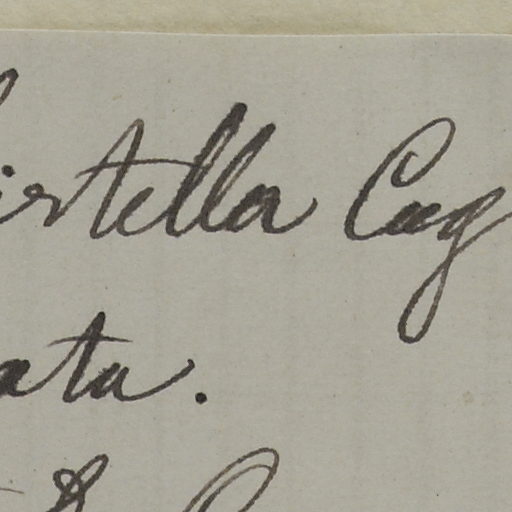 istella Cag
ata.